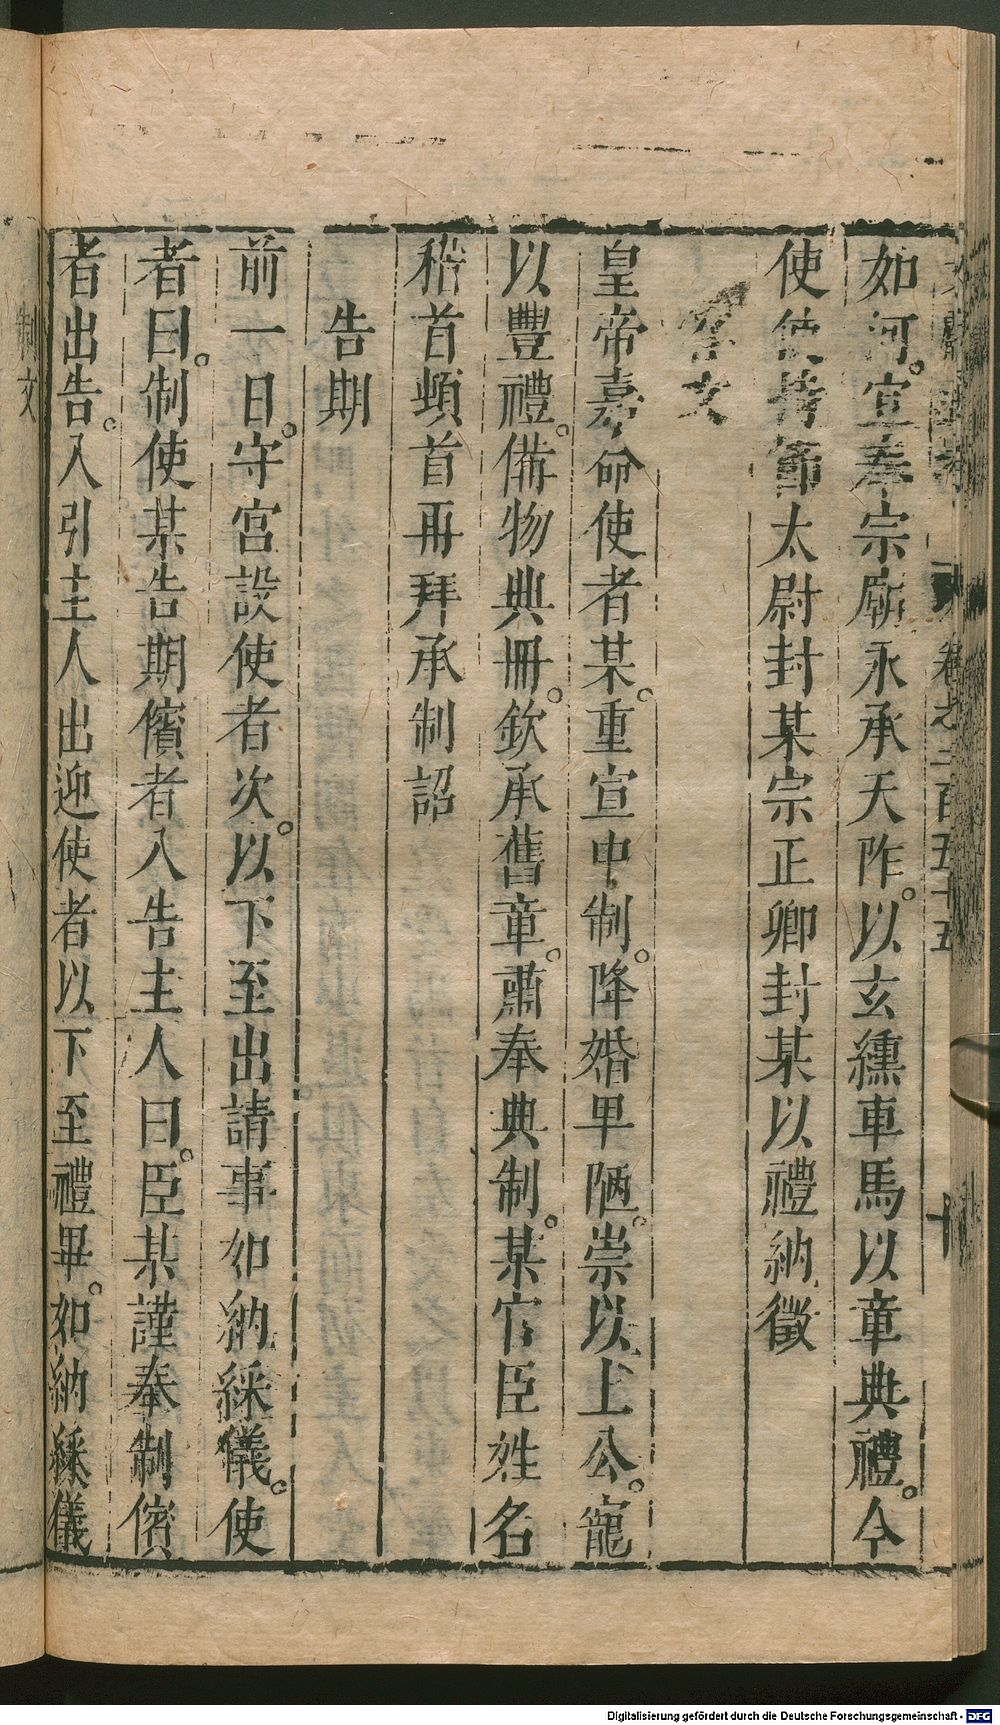 卷之二百五十五
十
如何。宣奉宗廟永承天祚。以玄纁車馬以章典禮。今
使使持節太尉封某宗正卿封某以禮納徵
答文
皇帝嘉命使者某。重宣中制。降婚卑陋。崇以上公。寵
以豐禮。備物典冊。欽承舊章。肅奉典制。某官臣姓名
稽首頓首再拜承制詔
告期
前一日。守宮設使者次。以下至出請事如納綵儀。使
者曰。制使某告期儐者入告主人曰。臣某謹奉制儐
者出告。入引主人出迎使者以下至禮畢。如納綵儀
制文
Digitalisierung gefördert durch die Deutsche Forschungsgemeinschaft - DFG